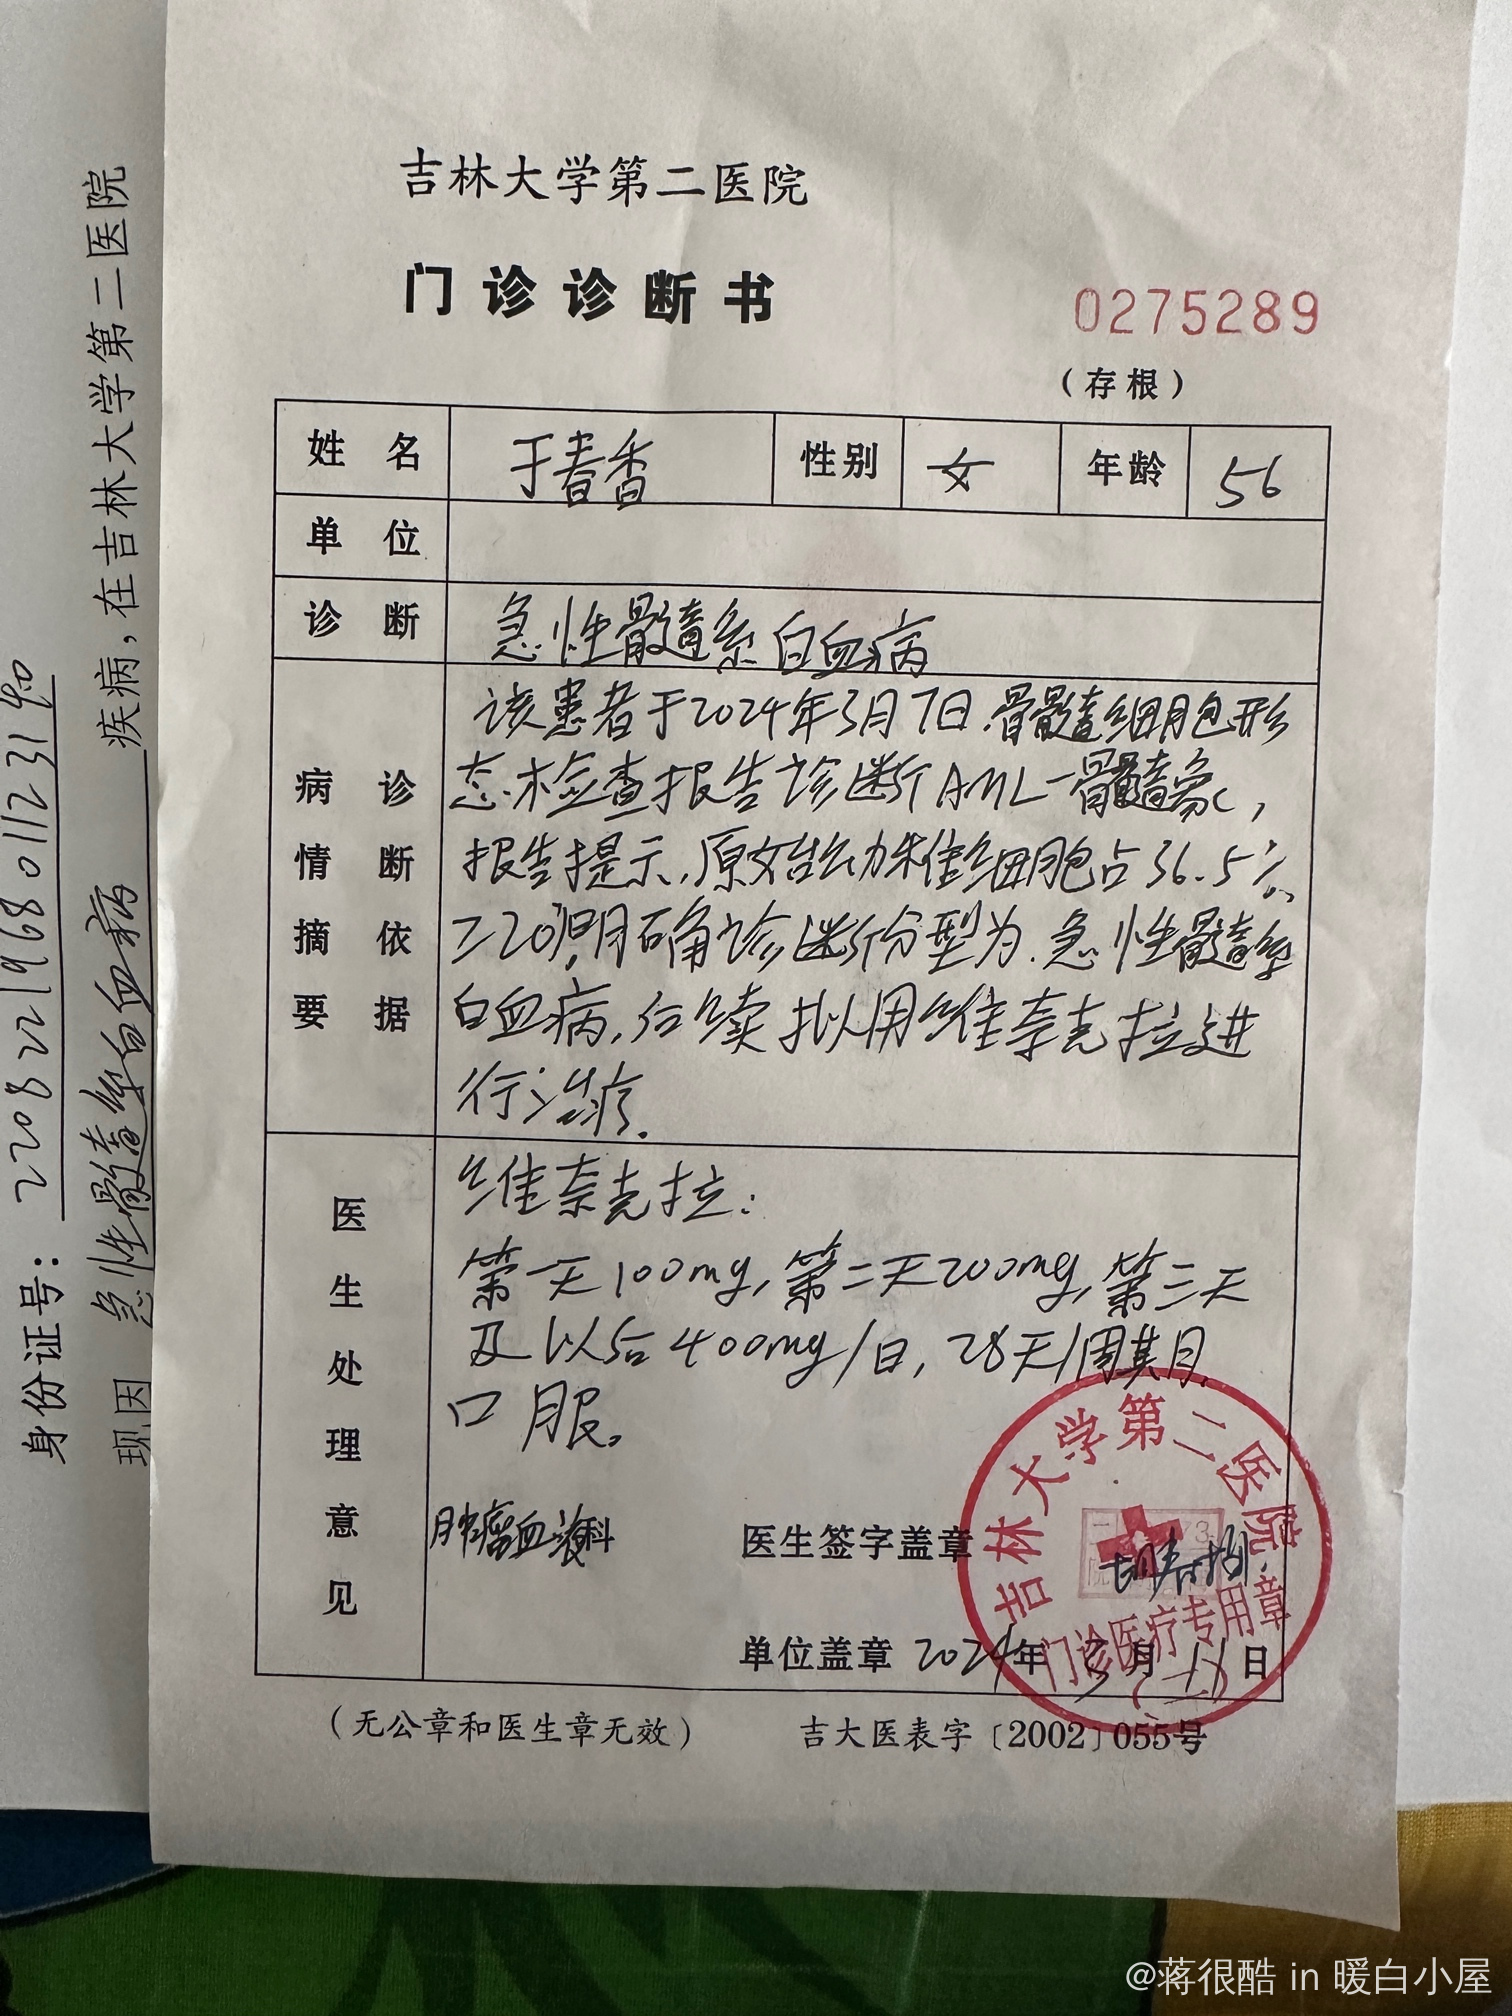 吉林大学第二医院
门诊诊断书
0275289
（存根）
姓名 于春香 性别 女 年龄 56
单位
诊断 急性髓系白血病
病情摘要 诊断依据
该患者于2024年3月7日.骨髓细胞形
态.检查报告诊断AML-骨髓象,
报告提示,原始幼稚细胞占36.5%
≥20%,明确诊断分型为.急性髓系
白血病,后续拟用维奈克拉进
行治疗.
医生处理意见
维奈克拉:
第一天100mg,第二天200mg,第三天
及以后400mg/日,28天/周期.
口服。
肿瘤血液科 医生签字盖章
单位盖章 2024年3月11日
（无公章和医生章无效） 吉大医表字〔2002〕055号
吉林大学第二医院
门诊医疗专用章
身份证号：220822196801123140
现因 急性髓系白血病 疾病，在吉林大学第二医院
@蒋很酷 in 暖白小屋